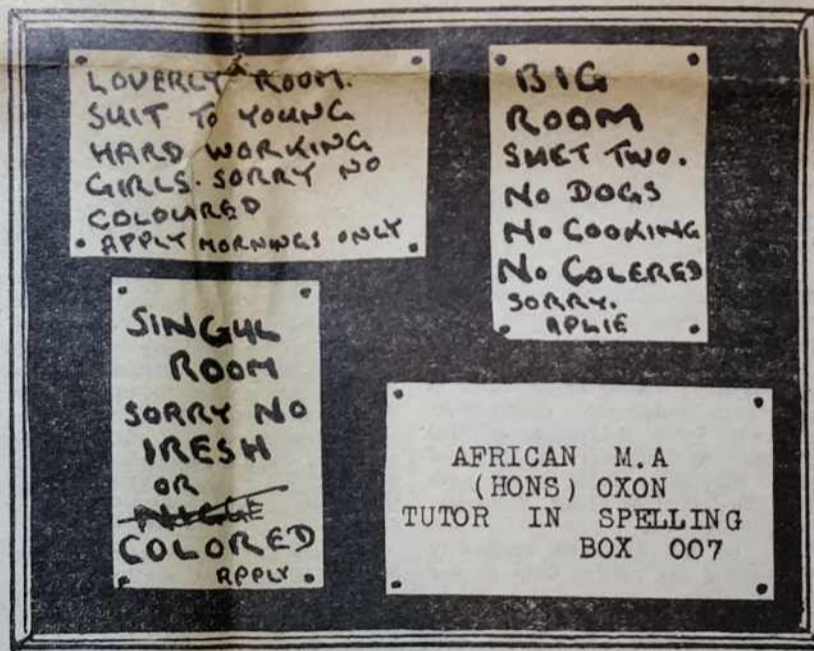 LOVERLY ROOM.
SUIT TO YOUNG
HARD WORKING
GIRLS. SORRY NO
COLOURED
APPLY MORNINGS ONLY
BIG
ROOM
SUET TWO.
NO DOGS
NO COOKING
NO COLERED
SORRY.
APLIE
SINGUL
ROOM
SORRY NO
IRESH
OR
NIGGE
COLORED
APPLY
AFRICAN M.A
(HONS) OXON
TUTOR IN SPELLING
BOX 007